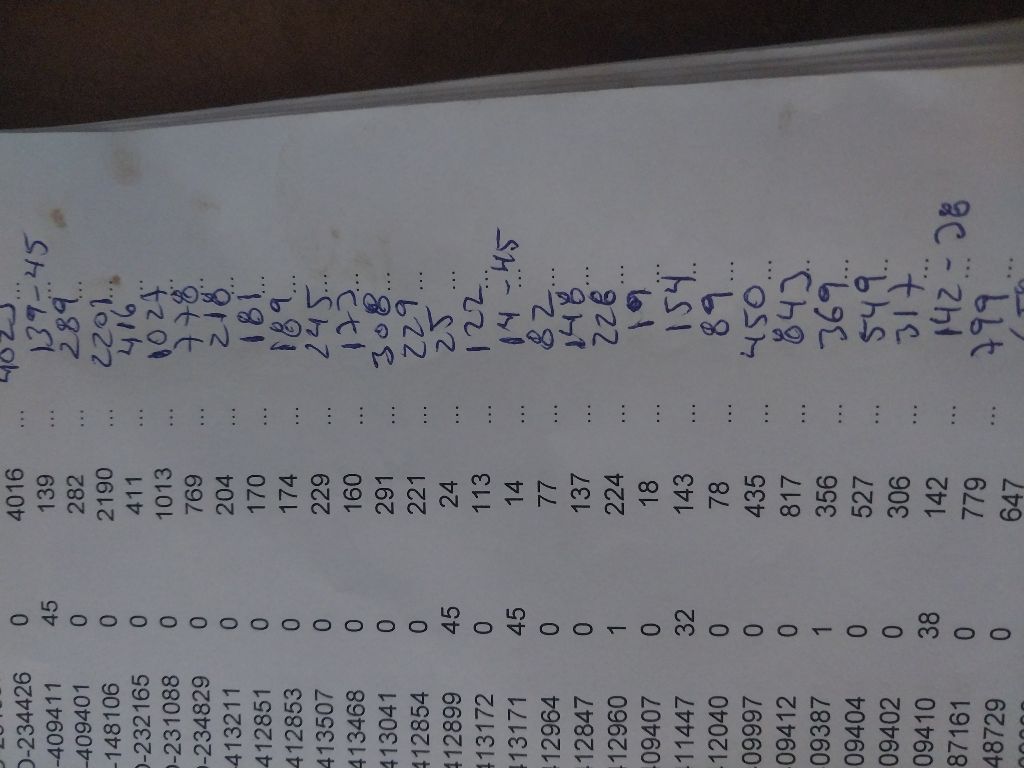 D-234426 0 4016 ... 4023 ...
-409411 45 139 ... 139-45 ...
-409401 0 282 ... 289 ...
-148106 0 2190 ... 2201 ...
D-232165 0 411 ... 416 ...
D-231088 0 1013 ... 1027 ...
D-234829 0 769 ... 778 ...
413211 0 204 ... 218 ...
412851 0 170 ... 181 ...
412853 0 174 ... 189 ...
413507 0 229 ... 245 ...
413468 0 160 ... 173 ...
413041 0 291 ... 308 ...
412854 0 221 ... 229 ...
412899 45 24 ... 25 ...
413172 0 113 ... 122 ...
413171 45 14 ... 14-45 ...
12964 0 77 ... 82 ...
12847 0 137 ... 148 ...
12960 1 224 ... 228 ...
09407 0 18 ... 19 ...
11447 32 143 ... 154 ...
12040 0 78 ... 89 ...
09997 0 435 ... 450 ...
09412 0 817 ... 843 ...
09387 1 356 ... 369 ...
09404 0 527 ... 549 ...
09402 0 306 ... 317 ...
09410 38 142 ... 142-38 ...
87161 0 779 ... 799 ...
48729 0 647